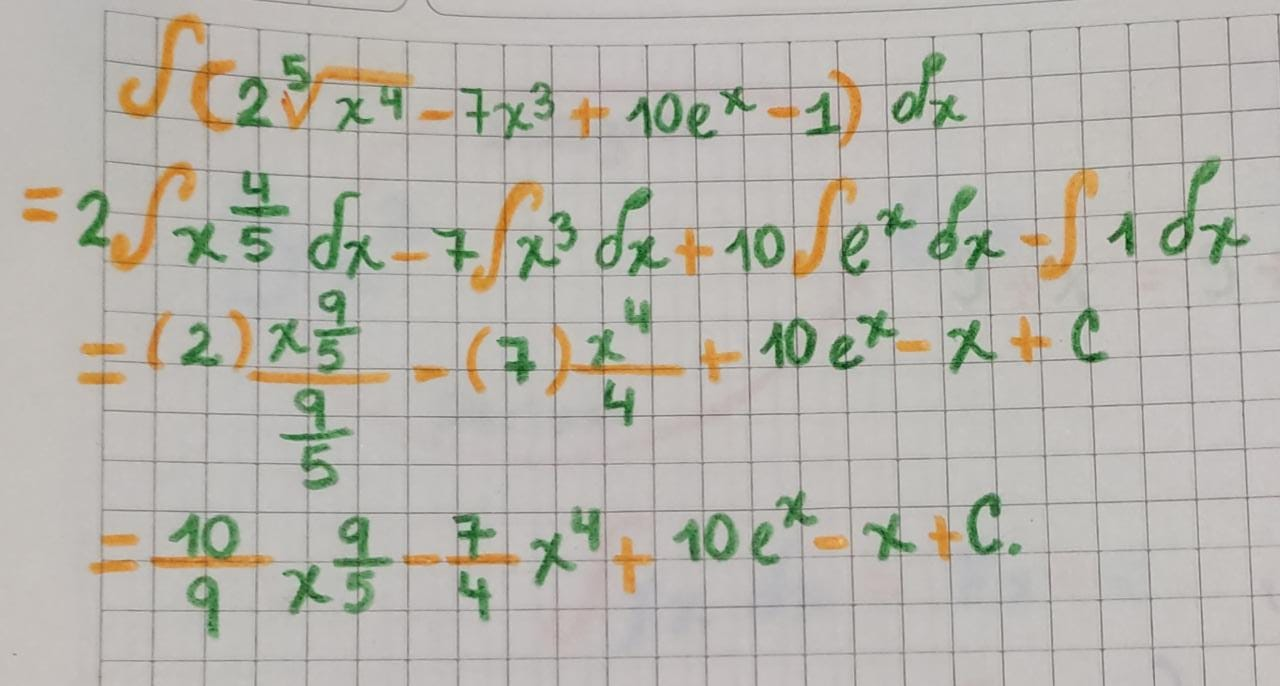 ∫(2⁵√x⁴ - 7x³ + 10eˣ - 1) dx
= 2∫x^(4/5) dx - 7∫x³ dx + 10∫eˣ dx - ∫1 dx
= (2) x^(9/5)/(9/5) - (7) x⁴/4 + 10eˣ - x + C
= 10/9 x^(9/5) - 7/4 x⁴ + 10eˣ - x + C.